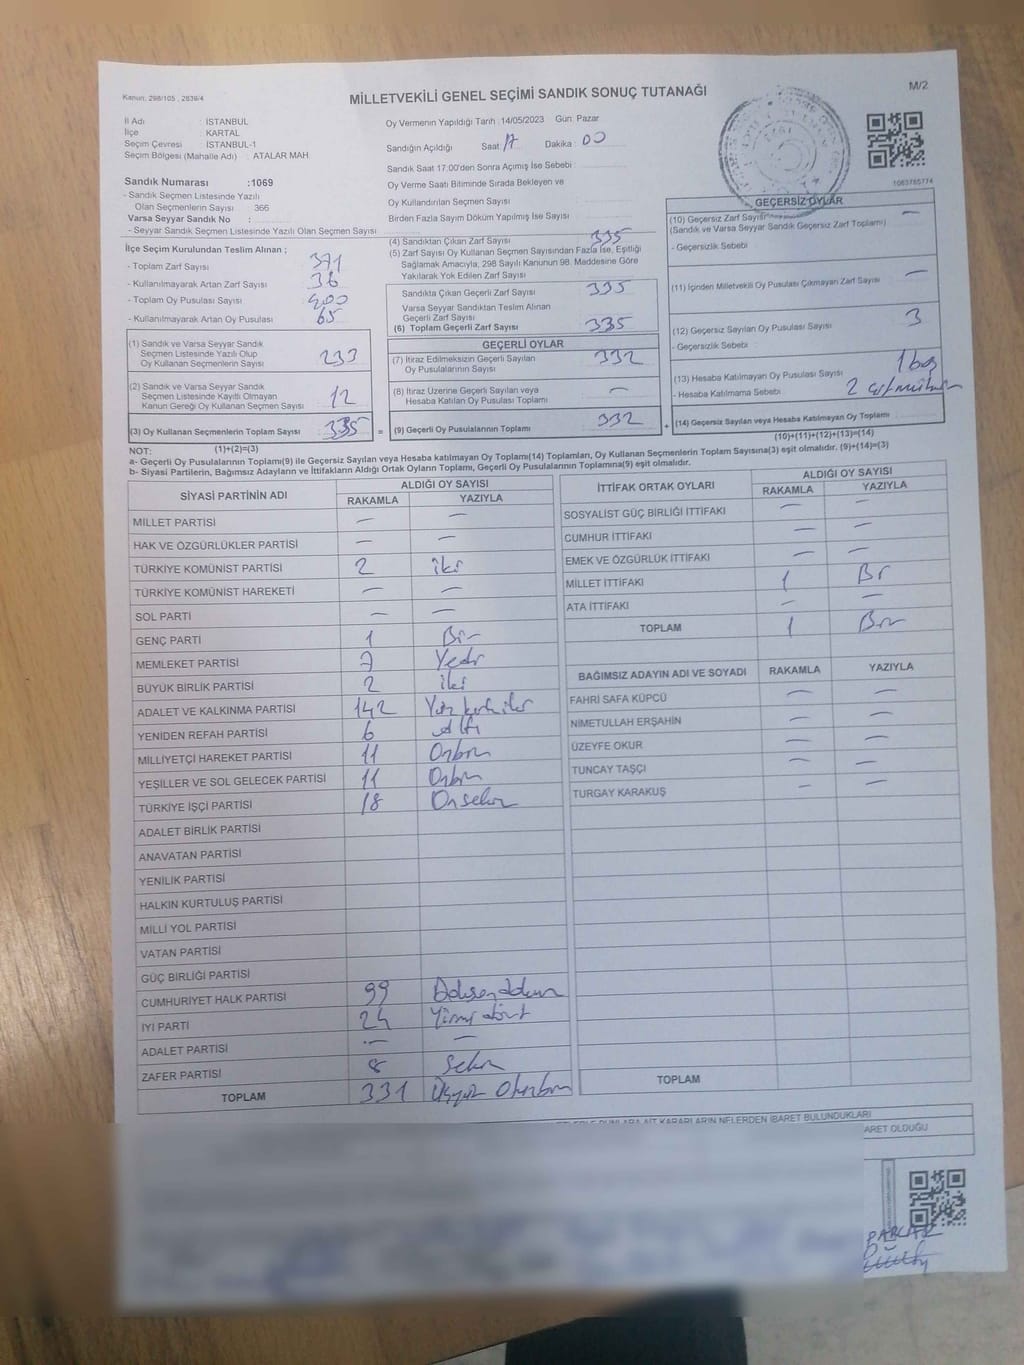 Kanun: 298/105 , 2839/4
MİLLETVEKİLİ GENEL SEÇİMİ SANDIK SONUÇ TUTANAĞI
M/2
İl Adı : İSTANBUL
İlçe : KARTAL
Seçim Çevresi : İSTANBUL-1
Seçim Bölgesi (Mahalle Adı) : ATALAR MAH.
Sandık Numarası :1069
- Sandık Seçmen Listesinde Yazılı
Olan Seçmenlerin Sayısı : 366
Varsa Seyyar Sandık No :
- Seyyar Sandık Seçmen Listesinde Yazılı Olan Seçmen Sayısı :
Oy Vermenin Yapıldığı Tarih :14/05/2023 Gün: Pazar
Sandığın Açıldığı Saat: 17 Dakika: 00
Sandık Saat 17.00'den Sonra Açımış İse Sebebi :
Oy Verme Saati Bitiminde Sırada Bekleyen ve
Oy Kullandırılan Seçmen Sayısı :
Birden Fazla Sayım Döküm Yapılmış İse Sayısı :
1063765774
İlçe Seçim Kurulundan Teslim Alınan ;
- Toplam Zarf Sayısı : 371
- Kullanılmayarak Artan Zarf Sayısı : 36
- Toplam Oy Pusulası Sayısı : 400
- Kullanılmayarak Artan Oy Pusulası : 65
(1) Sandık ve Varsa Seyyar Sandık
Seçmen Listesinde Yazılı Olup
Oy Kullanan Seçmenlerin Sayısı : 233
(2) Sandık ve Varsa Seyyar Sandık
Seçmen Listesinde Kayıtlı Olmayan
Kanun Gereği Oy Kullanan Seçmen Sayısı : 12
(3) Oy Kullanan Seçmenlerin Toplam Sayısı : 335
(1)+(2)=(3)
(4) Sandıktan Çıkan Zarf Sayısı : 335
(5) Zarf Sayısı Oy Kullanan Seçmen Sayısından Fazla İse, Eşitliği
Sağlamak Amacıyla, 298 Sayılı Kanunun 98. Maddesine Göre
Yakılarak Yok Edilen Zarf Sayısı :
Sandıkta Çıkan Geçerli Zarf Sayısı : 335
Varsa Seyyar Sandıktan Teslim Alınan
Geçerli Zarf Sayısı :
(6) Toplam Geçerli Zarf Sayısı : 335
GEÇERLİ OYLAR
(7) İtiraz Edilmeksizin Geçerli Sayılan
Oy Pusulalarının Sayısı : 332
(8) İtiraz Üzerine Geçerli Sayılan veya
Hesaba Katılan Oy Pusulası Toplamı : —
= (9) Geçerli Oy Pusulalarının Toplamı : 332 +
GEÇERSİZ OYLAR
(10) Geçersiz Zarf Sayısı : —
(Sandık ve Varsa Seyyar Sandık Geçersiz Zarf Toplamı)
- Geçersizlik Sebebi :
(11) İçinden Milletvekili Oy Pusulası Çıkmayan Zarf Sayısı : —
(12) Geçersiz Sayılan Oy Pusulası Sayısı : 3
- Geçersizlik Sebebi : 1 boş
(13) Hesaba Katılmayan Oy Pusulası Sayısı :
- Hesaba Katılmama Sebebi : 2
(14) Geçersiz Sayılan veya Hesaba Katılmayan Oy Toplamı :
(10)+(11)+(12)+(13)=(14)
NOT:
a- Geçerli Oy Pusulalarının Toplamı(9) ile Geçersiz Sayılan veya Hesaba katılmayan Oy Toplamı(14) Toplamları, Oy Kullanan Seçmenlerin Toplam Sayısına(3) eşit olmalıdır. (9)+(14)=(3)
b- Siyasi Partilerin, Bağımsız Adayların ve İttifakların Aldığı Ortak Oyların Toplamı, Geçerli Oy Pusulalarının Toplamına(9) eşit olmalıdır.
SİYASİ PARTİNİN ADI ALDIĞI OY SAYISI
RAKAMLA YAZIYLA
MİLLET PARTİSİ — —
HAK VE ÖZGÜRLÜKLER PARTİSİ — —
TÜRKİYE KOMÜNİST PARTİSİ 2 iki
TÜRKİYE KOMÜNİST HAREKETİ — —
SOL PARTİ — —
GENÇ PARTİ 1 Bir
MEMLEKET PARTİSİ 7 Yedi
BÜYÜK BİRLİK PARTİSİ 2 iki
ADALET VE KALKINMA PARTİSİ 142 Yüz kırk iki
YENİDEN REFAH PARTİSİ 6 Altı
MİLLİYETÇİ HAREKET PARTİSİ 11 Onbir
YEŞİLLER VE SOL GELECEK PARTİSİ 11 Onbir
TÜRKİYE İŞÇİ PARTİSİ 18 Onsekiz
ADALET BİRLİK PARTİSİ
ANAVATAN PARTİSİ
YENİLİK PARTİSİ
HALKIN KURTULUŞ PARTİSİ
MİLLİ YOL PARTİSİ
VATAN PARTİSİ
GÜÇ BİRLİĞİ PARTİSİ
CUMHURİYET HALK PARTİSİ 99 Doksandokuz
İYİ PARTİ 24 Yirmi dört
ADALET PARTİSİ — —
ZAFER PARTİSİ 8 Sekiz
TOPLAM 331 Üçyüz Otuzbir
İTTİFAK ORTAK OYLARI ALDIĞI OY SAYISI
RAKAMLA YAZIYLA
SOSYALİST GÜÇ BİRLİĞİ İTTİFAKI — —
CUMHUR İTTİFAKI — —
EMEK VE ÖZGÜRLÜK İTTİFAKI — —
MİLLET İTTİFAKI 1 Bir
ATA İTTİFAKI — —
TOPLAM 1 Bir
BAĞIMSIZ ADAYIN ADI VE SOYADI RAKAMLA YAZIYLA
FAHRİ SAFA KÜPCÜ — —
NİMETULLAH ERŞAHİN — —
ÜZEYFE OKUR — —
TUNCAY TAŞÇI — —
TURGAY KARAKUŞ — —
TOPLAM
AİT KARARLARIN NELERDEN İBARET BULUNDUKLARI
ARET OLDUĞU